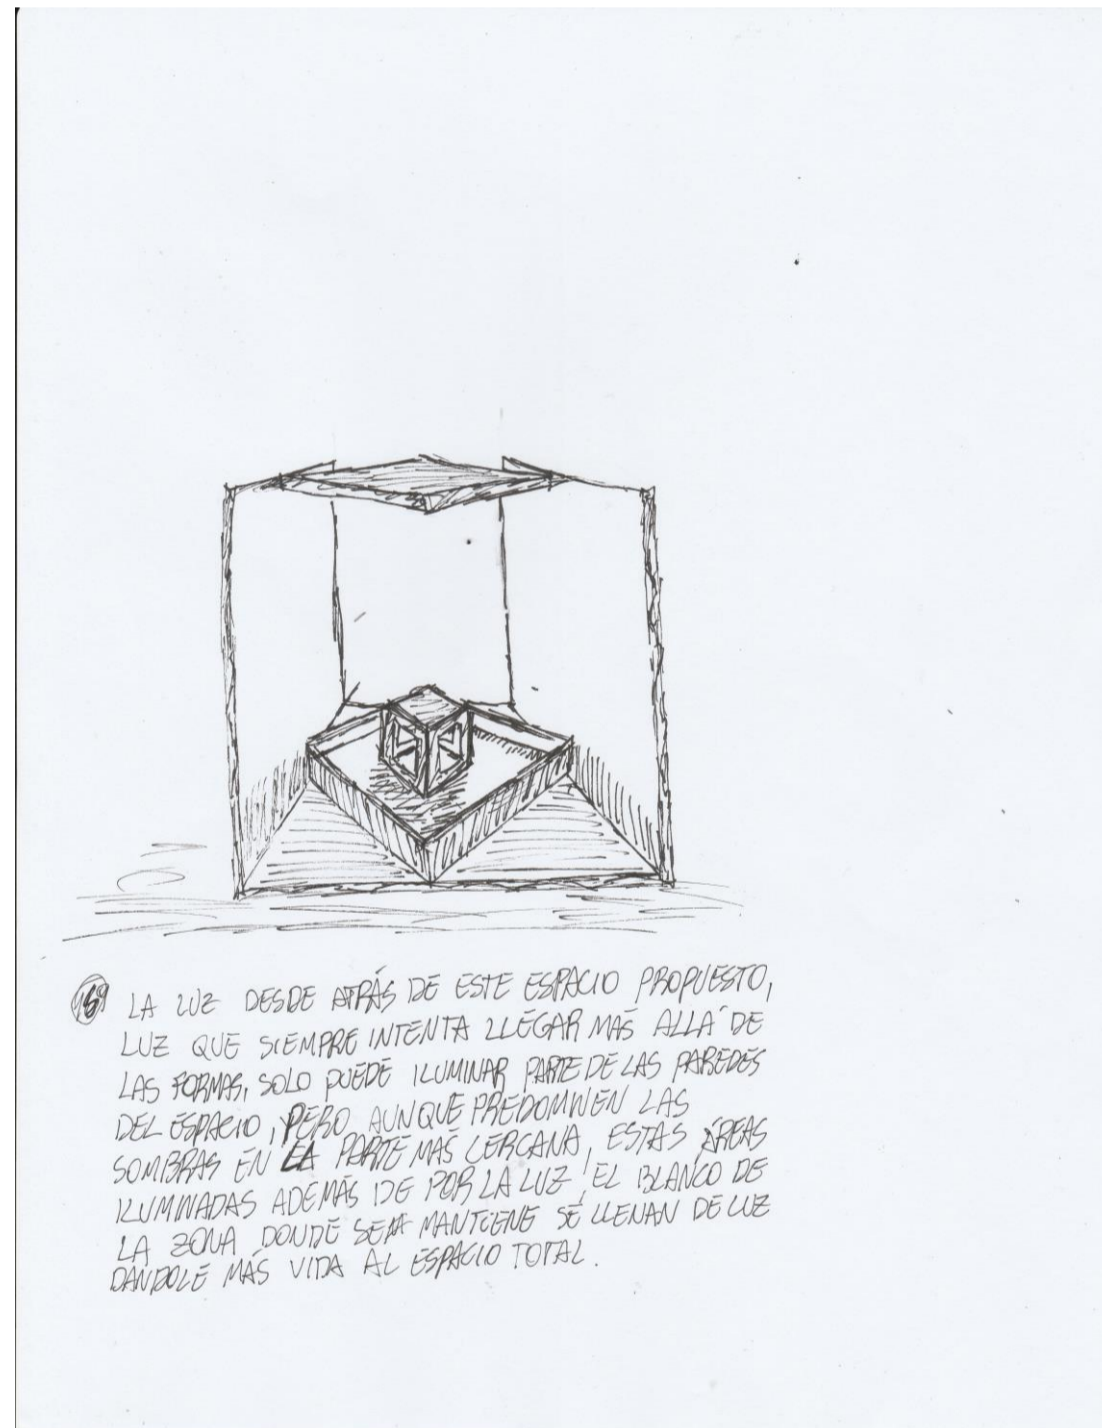 169 LA LUZ DESDE ATRÁS DE ESTE ESPACIO PROPUESTO,
LUZ QUE SIEMPRE INTENTA LLEGAR MAS ALLÁ DE
LAS FORMAS, SOLO PUEDE ILUMINAR PARTE DE LAS PAREDES
DEL ESPACIO, PERO AUNQUE PREDOMINEN LAS
SOMBRAS EN LA PARTE MAS CERCANA, ESTAS ÁREAS
ILUMINADAS ADEMÁS DE POR LA LUZ, EL BLANCO DE
LA ZONA DONDE SE MANTIENE SE LLENAN DE LUZ
DANDOLE MÁS VIDA AL ESPACIO TOTAL.